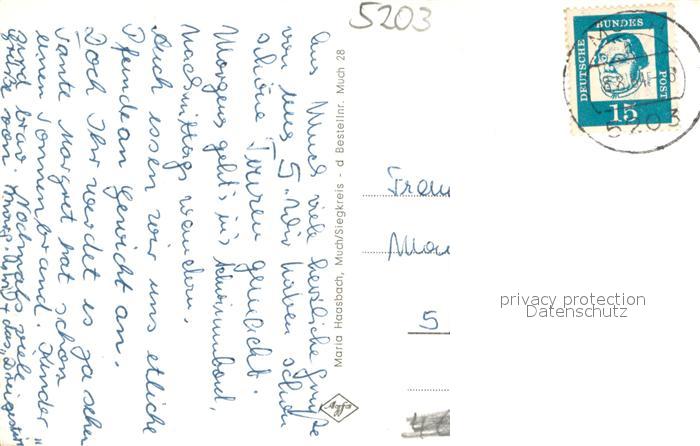 Aus Much viele herzliche Grüße
von uns 5. Wir haben schon
schöne Touren gemacht.
Morgens geht's ins Schwimmbad,
nachmittags wandern.
Auch essen wir uns etliche
Pfunde an Gewicht an.
Doch Ihr werdet es ja sehen
Tante Margret hat schon
einen Sonnenbrand. Kinder
sind brav. Nochmals viele
Grüße von
Maria Haasbach, Much/Siegkreis - d Bestellnr. Much 28
Agfa
5203
DEUTSCHE BUNDES POST
15
5203
5
privacy protection
Datenschutz